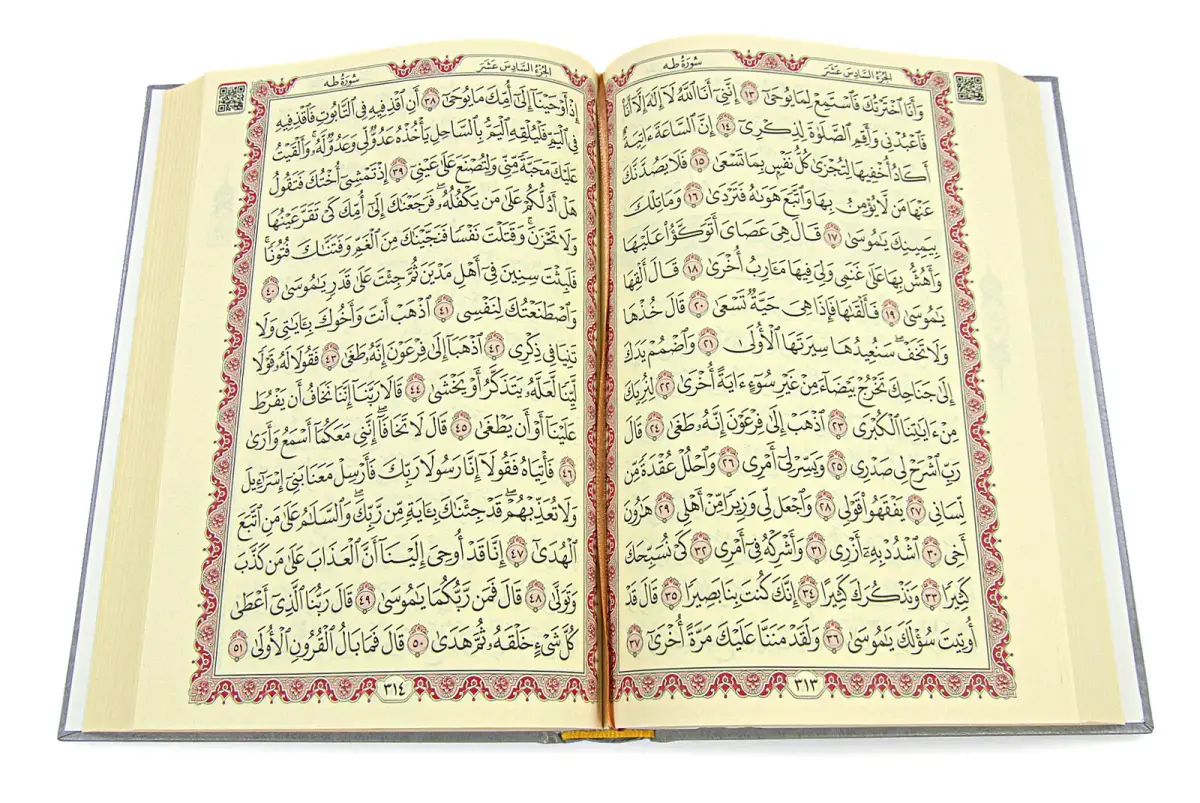 الجزء السادس عشر
سورة طه
وَأَنَا ٱخْتَرْتُكَ فَٱسْتَمِعْ لِمَا يُوحَىٰٓ ١٣ إِنَّنِىٓ أَنَا ٱللَّهُ لَآ إِلَٰهَ إِلَّآ أَنَا۠
فَٱعْبُدْنِى وَأَقِمِ ٱلصَّلَوٰةَ لِذِكْرِىٓ ١٤ إِنَّ ٱلسَّاعَةَ ءَاتِيَةٌ
أَكَادُ أُخْفِيهَا لِتُجْزَىٰ كُلُّ نَفْسٍۭ بِمَا تَسْعَىٰ ١٥ فَلَا يَصُدَّنَّكَ
عَنْهَا مَن لَّا يُؤْمِنُ بِهَا وَٱتَّبَعَ هَوَىٰهُ فَتَرْدَىٰ ١٦ وَمَا تِلْكَ
بِيَمِينِكَ يَٰمُوسَىٰ ١٧ قَالَ هِىَ عَصَاىَ أَتَوَكَّؤُا۟ عَلَيْهَا
وَأَهُشُّ بِهَا عَلَىٰ غَنَمِى وَلِىَ فِيهَا مَـَٔارِبُ أُخْرَىٰ ١٨ قَالَ أَلْقِهَا
يَٰمُوسَىٰ ١٩ فَأَلْقَىٰهَا فَإِذَا هِىَ حَيَّةٌ تَسْعَىٰ ٢٠ قَالَ خُذْهَا
وَلَا تَخَفْ ۖ سَنُعِيدُهَا سِيرَتَهَا ٱلْأُولَىٰ ٢١ وَٱضْمُمْ يَدَكَ
إِلَىٰ جَنَاحِكَ تَخْرُجْ بَيْضَآءَ مِنْ غَيْرِ سُوٓءٍ ءَايَةً أُخْرَىٰ ٢٢ لِنُرِيَكَ
مِنْ ءَايَٰتِنَا ٱلْكُبْرَى ٢٣ ٱذْهَبْ إِلَىٰ فِرْعَوْنَ إِنَّهُۥ طَغَىٰ ٢٤ قَالَ
رَبِّ ٱشْرَحْ لِى صَدْرِى ٢٥ وَيَسِّرْ لِىٓ أَمْرِى ٢٦ وَٱحْلُلْ عُقْدَةً مِّن
لِّسَانِى ٢٧ يَفْقَهُوا۟ قَوْلِى ٢٨ وَٱجْعَل لِّى وَزِيرًا مِّنْ أَهْلِى ٢٩ هَٰرُونَ
أَخِى ٣٠ ٱشْدُدْ بِهِۦٓ أَزْرِى ٣١ وَأَشْرِكْهُ فِىٓ أَمْرِى ٣٢ كَىْ نُسَبِّحَكَ
كَثِيرًا ٣٣ وَنَذْكُرَكَ كَثِيرًا ٣٤ إِنَّكَ كُنتَ بِنَا بَصِيرًا ٣٥ قَالَ قَدْ
أُوتِيتَ سُؤْلَكَ يَٰمُوسَىٰ ٣٦ وَلَقَدْ مَنَنَّا عَلَيْكَ مَرَّةً أُخْرَىٰٓ ٣٧
٣١٣
الجزء السادس عشر
سورة طه
إِذْ أَوْحَيْنَآ إِلَىٰٓ أُمِّكَ مَا يُوحَىٰٓ ٣٨ أَنِ ٱقْذِفِيهِ فِى ٱلتَّابُوتِ فَٱقْذِفِيهِ
فِى ٱلْيَمِّ فَلْيُلْقِهِ ٱلْيَمُّ بِٱلسَّاحِلِ يَأْخُذْهُ عَدُوٌّ لِّى وَعَدُوٌّ لَّهُۥ ۚ وَأَلْقَيْتُ
عَلَيْكَ مَحَبَّةً مِّنِّى وَلِتُصْنَعَ عَلَىٰ عَيْنِىٓ ٣٩ إِذْ تَمْشِىٓ أُخْتُكَ فَتَقُولُ
هَلْ أَدُلُّكُمْ عَلَىٰ مَن يَكْفُلُهُۥ ۖ فَرَجَعْنَٰكَ إِلَىٰٓ أُمِّكَ كَىْ تَقَرَّ عَيْنُهَا
وَلَا تَحْزَنَ ۚ وَقَتَلْتَ نَفْسًا فَنَجَّيْنَٰكَ مِنَ ٱلْغَمِّ وَفَتَنَّٰكَ فُتُونًا ۚ
فَلَبِثْتَ سِنِينَ فِىٓ أَهْلِ مَدْيَنَ ثُمَّ جِئْتَ عَلَىٰ قَدَرٍ يَٰمُوسَىٰ ٤٠
وَٱصْطَنَعْتُكَ لِنَفْسِى ٤١ ٱذْهَبْ أَنتَ وَأَخُوكَ بِـَٔايَٰتِى وَلَا
تَنِيَا فِى ذِكْرِى ٤٢ ٱذْهَبَآ إِلَىٰ فِرْعَوْنَ إِنَّهُۥ طَغَىٰ ٤٣ فَقُولَا لَهُۥ قَوْلًا
لَّيِّنًا لَّعَلَّهُۥ يَتَذَكَّرُ أَوْ يَخْشَىٰ ٤٤ قَالَا رَبَّنَآ إِنَّنَا نَخَافُ أَن يَفْرُطَ
عَلَيْنَآ أَوْ أَن يَطْغَىٰ ٤٥ قَالَ لَا تَخَافَآ ۖ إِنَّنِى مَعَكُمَآ أَسْمَعُ وَأَرَىٰ
٤٦ فَأْتِيَاهُ فَقُولَآ إِنَّا رَسُولَا رَبِّكَ فَأَرْسِلْ مَعَنَا بَنِىٓ إِسْرَٰٓءِيلَ
وَلَا تُعَذِّبْهُمْ ۖ قَدْ جِئْنَٰكَ بِـَٔايَةٍ مِّن رَّبِّكَ ۖ وَٱلسَّلَٰمُ عَلَىٰ مَنِ ٱتَّبَعَ
ٱلْهُدَىٰٓ ٤٧ إِنَّا قَدْ أُوحِىَ إِلَيْنَآ أَنَّ ٱلْعَذَابَ عَلَىٰ مَن كَذَّبَ
وَتَوَلَّىٰ ٤٨ قَالَ فَمَن رَّبُّكُمَا يَٰمُوسَىٰ ٤٩ قَالَ رَبُّنَا ٱلَّذِىٓ أَعْطَىٰ
كُلَّ شَىْءٍ خَلْقَهُۥ ثُمَّ هَدَىٰ ٥٠ قَالَ فَمَا بَالُ ٱلْقُرُونِ ٱلْأُولَىٰ ٥١
٣١٤